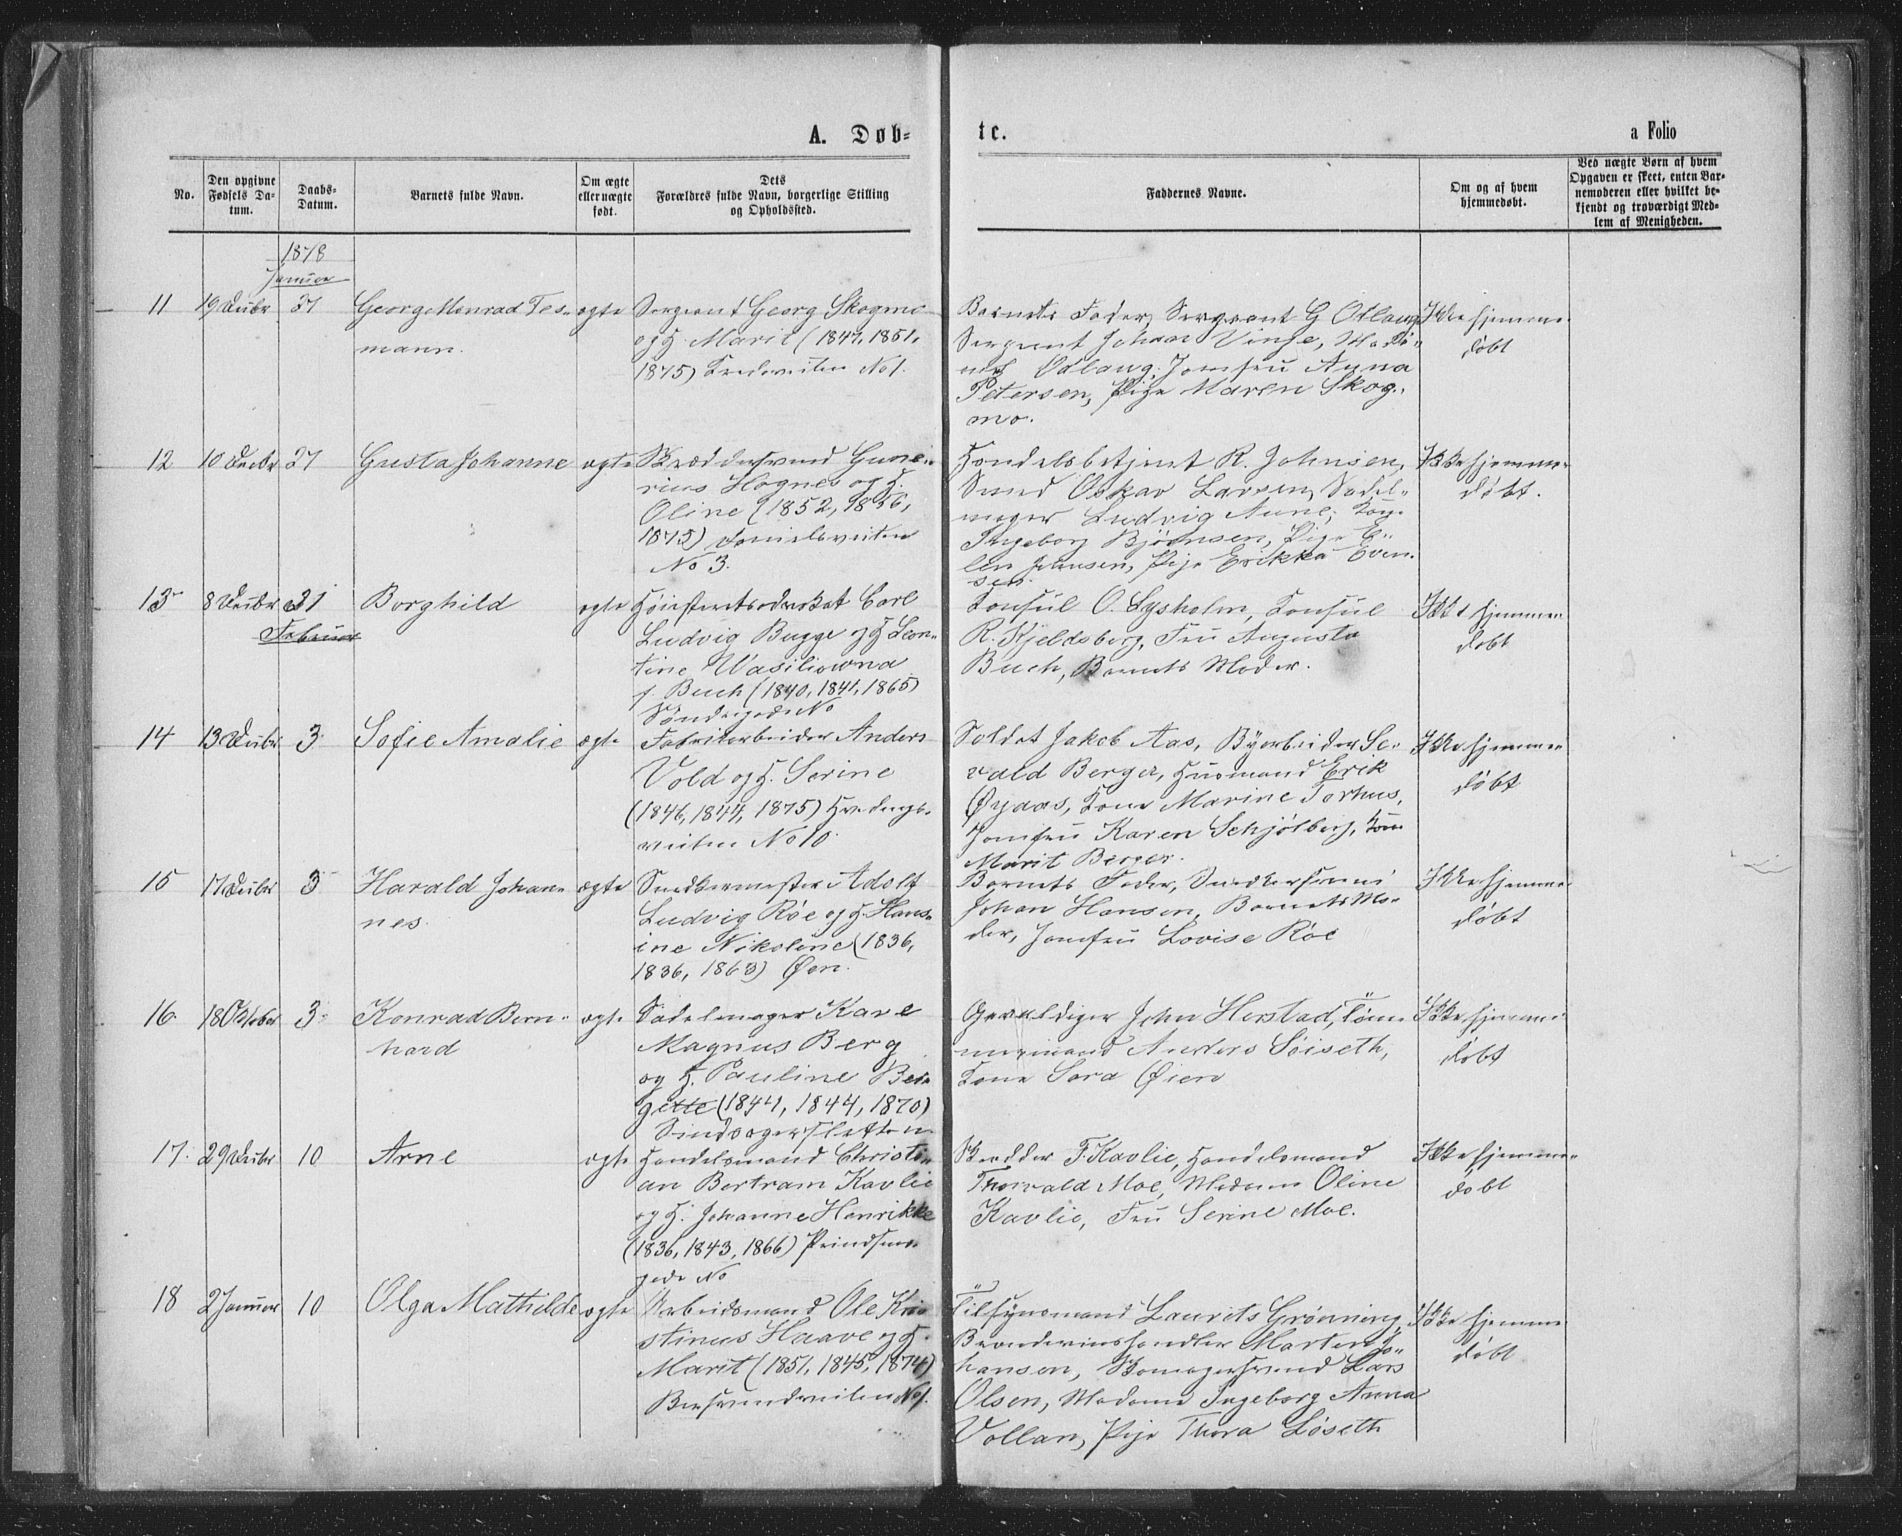 A. Døb-
te.
a Folio
No.
Den opgivne Fødsels Datum.
Daabs-Datum.
Barnets fulde Navn.
Om ægte eller uægte født.
Dets Forældres fulde Navn, borgerlige Stilling og Opholdssted.
Faddernes Navne.
Om og af hvem hjemmedøbt.
Ved uægte Børn af hvem Opgaven er skeet, enten Barnemoderen eller hvilket bekjendt og troværdigt Medlem af Menigheden.
1878
Januar
11 19 Decbr 27 George Monrad Tes-
mann.
ægte
Sergeant Georg Skogmo
og H. Marit (1847, 1851,
1875) No 1.
Barnets Fader, Sergeant G Otlaug
Sergeant Johan Vinje, Mada-
me Otlaug, Jomfru Anna
Petersen, Pige Maren Skog-
mo.
Ikke hjemme-
døbt
12 10 Decbr 27 Gusta Johanne ægte
Skræddersvend Gune-
rius Hognes og H.
Oline (1852, 1856,
1875) Danielsveiten
No 3.
Handelsbetjent R. Johnsen,
Smed Oskar Larsen, Sadel-
mager Ludvig Aune, Kone
Ingeborg Bjørnsen, Pige E-
len Johnsen, Pige Erikka Even-
sen.
Ikke hjemme-
døbt.
13 8 Decbr 31 Borghild ægte
Februar
Høiesteretsadvokat Carl
Ludvig Bugge og H Leon-
tine Wasiliowna
f. Buch (1840, 1841, 1865)
Søndregade No
Konsul O. Lysholm, Konsul
R. Kjeldsberg, Fru Augusta
Buch, Barnets Moder.
Ikke hjemme-
døbt
14 13 Decbr 3 Sofie Amalie ægte
Fabrikarbeider Anders
Vold og H. Serine
(1846, 1844, 1875)
veiten No 10.
Soldat Jakob Aas, Byarbeider Se-
vald Berger, Husmand Erik
Øyaas, Kone Marine Torhus,
Jomfru Karen Schjølberg, Kone
Marit Berger.
Ikke hjemme-
døbt
15 17 Decbr 3 Harald Johan-
nes.
ægte
Snedkermester Adolf
Ludvig Røe og H. Hans-
ine Nikoline (1836,
1836, 1863) Øen.
Barnets Fader, Snedkersvend
Johan Hansen, Barnets Mo-
der, Jomfru Lovise Røe
Ikke hjemme-
døbt
16. 18 Oktober 3 Konrad Bern-
hard
ægte
Sadelmager Kare
Magnus Berg
og H. Pauline Ber-
gette (1844, 1844, 1870)
Gevaldiger John Herstad, Tøm-
mermand Anders Søiseth,
Kone Sara Øien
Ikke hjemme-
døbt
17. 29 Decbr 10 Arne ægte
Handelsmand Christi-
an Bertram Kavlie
og H. Johanne Henrikke
(1836, 1843, 1866) Prindsens-
gade No
Skrædder F. Kavlie, Handelsmand
Thorvald Moe, Madame Oline
Kavlie, Fru Serine Moe.
Ikke hjemme-
døbt
18 2 Januar 10 Olga Mathilde ægte
Arbeidsmand Ole Kri-
stinus Haave og H.
Marit (1851, 1845, 1874)
Bersvendveiten No 1.
Tilsynsmand Laurits Grønning,
Brændevinshandler Marten Jo-
hansen, Skomagersvend Lars
Olsen, Madame Ingeborg Anna
Vollan, Pige Thora Løseth
Ikke hjemme-
døbt